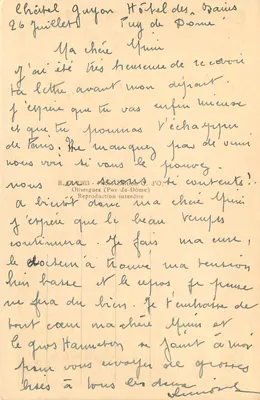 Châtel Guyon Hôtel des Bains
26 Juillet Puy de Dôme
Ma chère Mimi
J'ai été très heureuse de recevoir
ta lettre avant mon départ.
J'espère que tu vas enfin mieux
et que tu pourras t'échapper
de Paris. Ne manquez pas de venir
nous voir si vous le pouvez.
nous en serons si contents!
Auvergne (Puy-de-Dôme)
Reproduction interdite
A bientôt donc ma chère Mimi
j'espère que le beau temps
continuera. Je fais ma cure,
le docteur a trouvé ma tension
bien basse et le repos je pense
me fera du bien. Je t'embrasse de
tout cœur ma chère Mimi et
le gros Hanneton se joint à moi
pour vous envoyer de grosses
bises à tous les deux
Simone